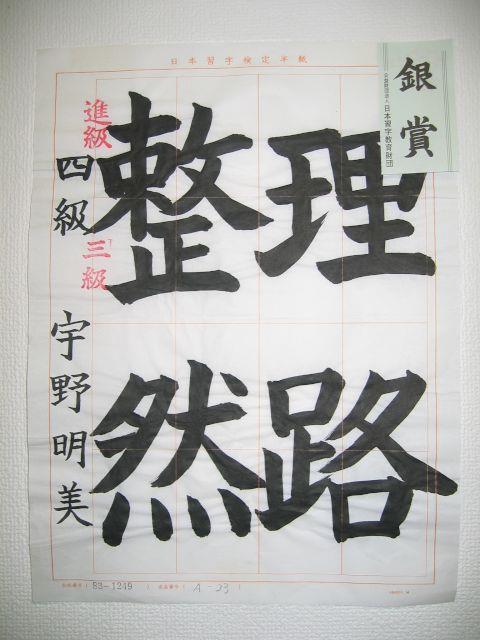 日本習字検定半紙
銀賞
公益財団法人 日本習字教育財団
理路
整然
進級
四級
三級
宇野明美
83-1249
A-23